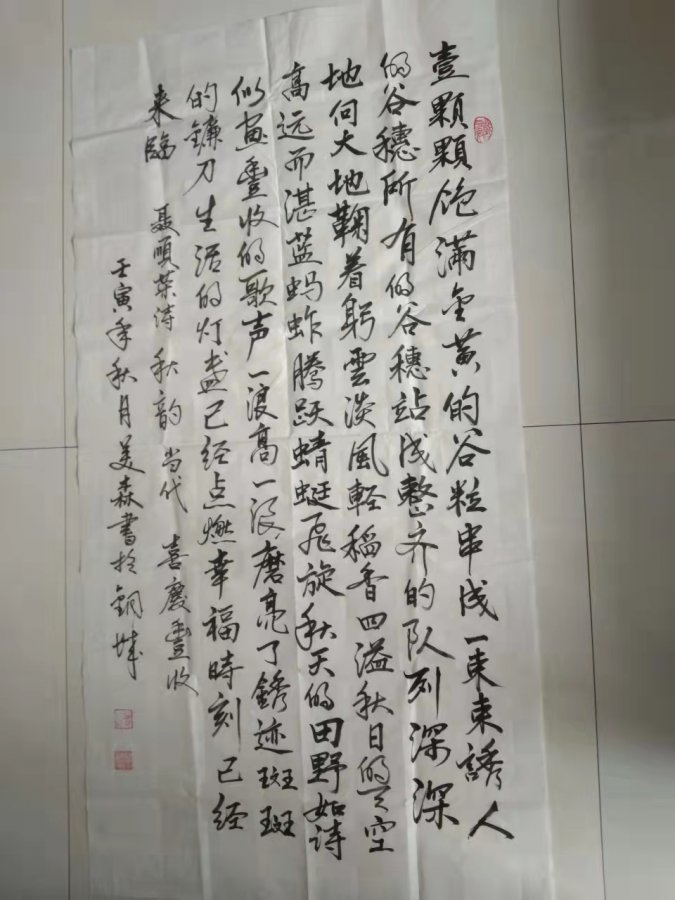 壹顆顆飽滿金黄的谷粒串成一束束誘人
的谷穗所有的谷穗站成整齐的队列深深
地向大地鞠着躬雲淡風軽稻香四溢秋日的天空
高远而湛蓝蚂蚱腾跃蜻蜓飛旋秋天的田野如詩
似画豐收的歌声一浪高一浪磨亮了銹迹斑斑
的镰刀生活的灯盏已经点燃幸福時刻已经
来臨 聂順荣诗 秋韵 当代 喜慶豐收
壬寅年秋月美森書於銅城